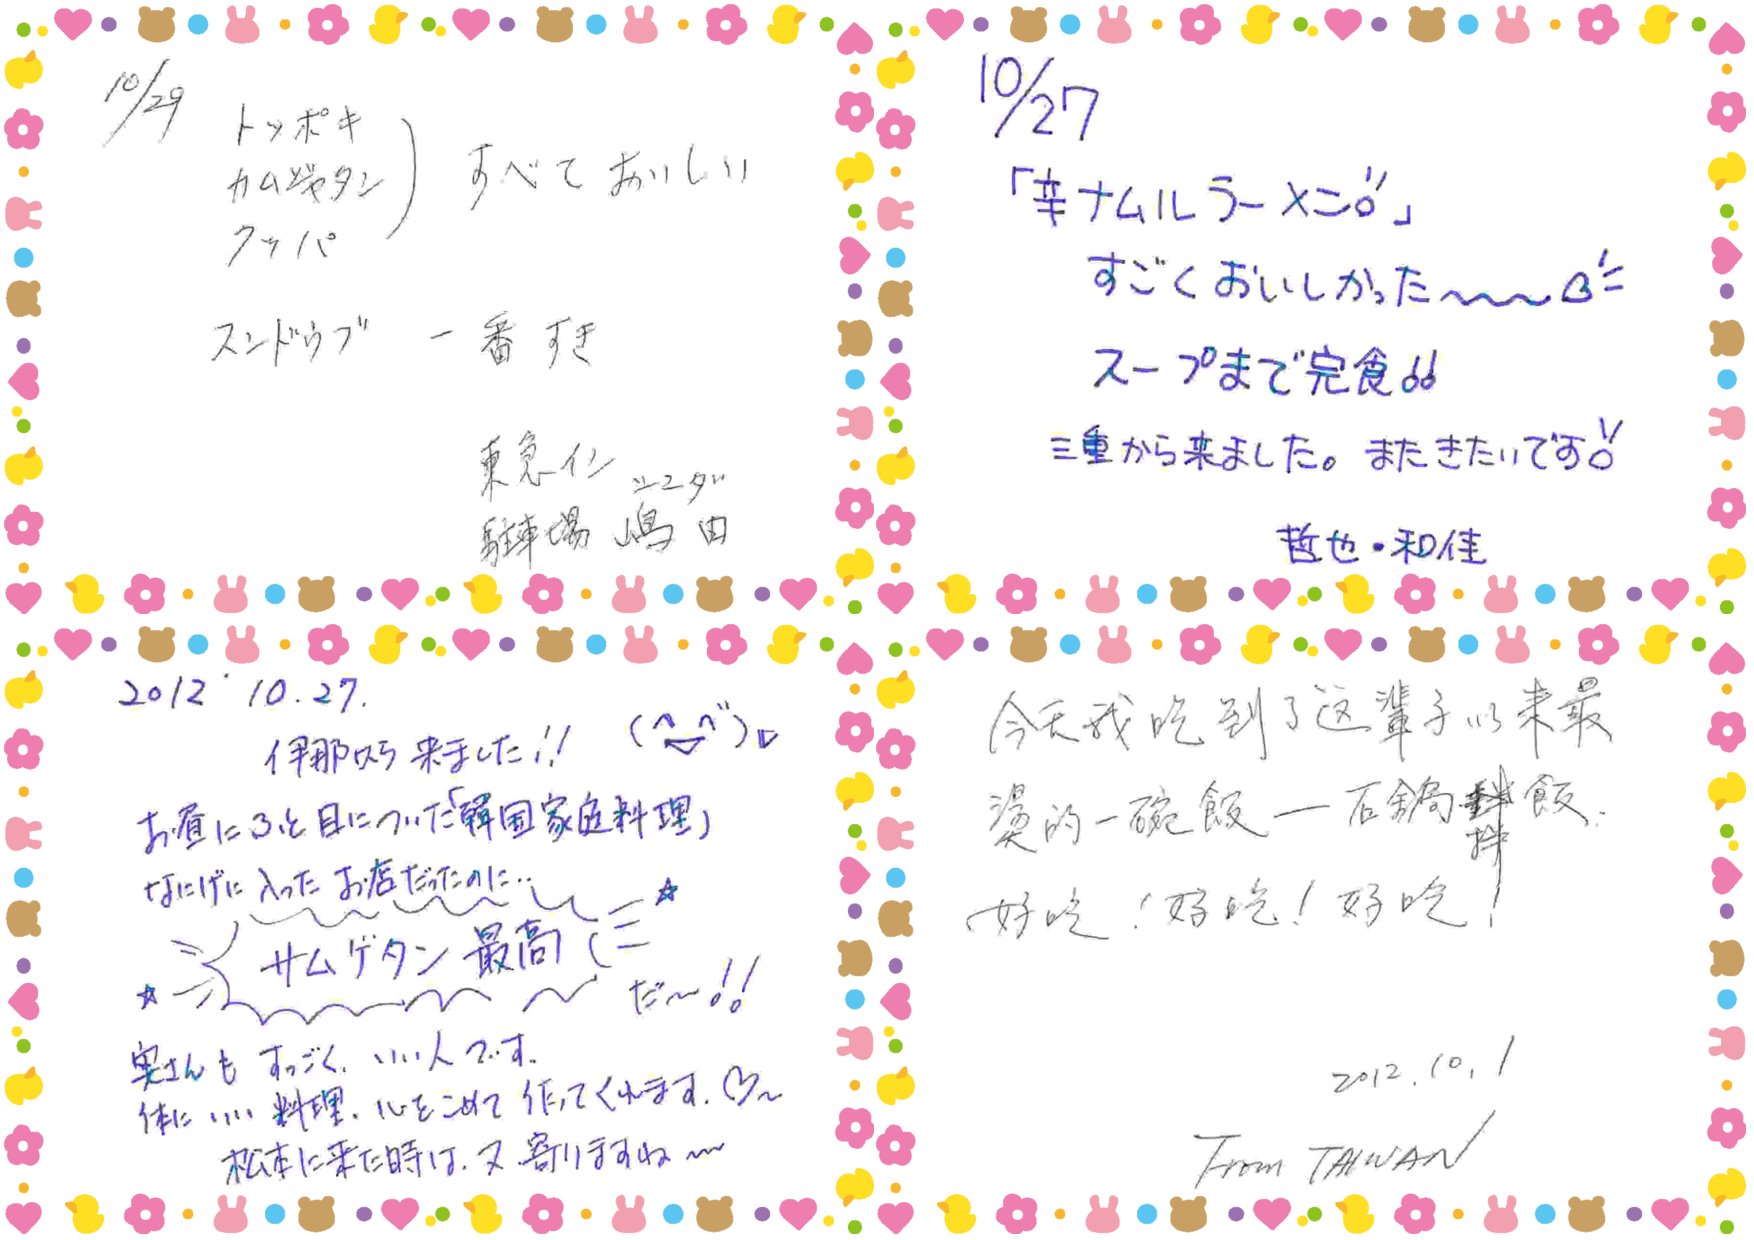 10/29
トッポキ
カムジャタン
クッパ
すべて おいしい
スンドゥブ 一番 すき
東急イン
シマダ
駐車場 嶋田
10/27
「辛ナムルラーメン!!」
すごくおいしかった〜〜〜
スープまで完食!!
三重から来ました。またきたいです!!
哲也・和佳
2012 10.27.
伊那から来ました!!
お昼にふと目についた「韓国家庭料理」
なにげに入ったお店だったのに..
サムゲタン 最高
だ〜!!
奥さんも すっごく、いい人です。
体に いい 料理、心をこめて 作ってくれます。♡〜
松本に来た時は、又、寄りますね〜
今天我吃到了这輩子以来最
燙的一碗飯—石鍋拌飯.
好吃!好吃!好吃!
2012.10.1
From TAIWAN